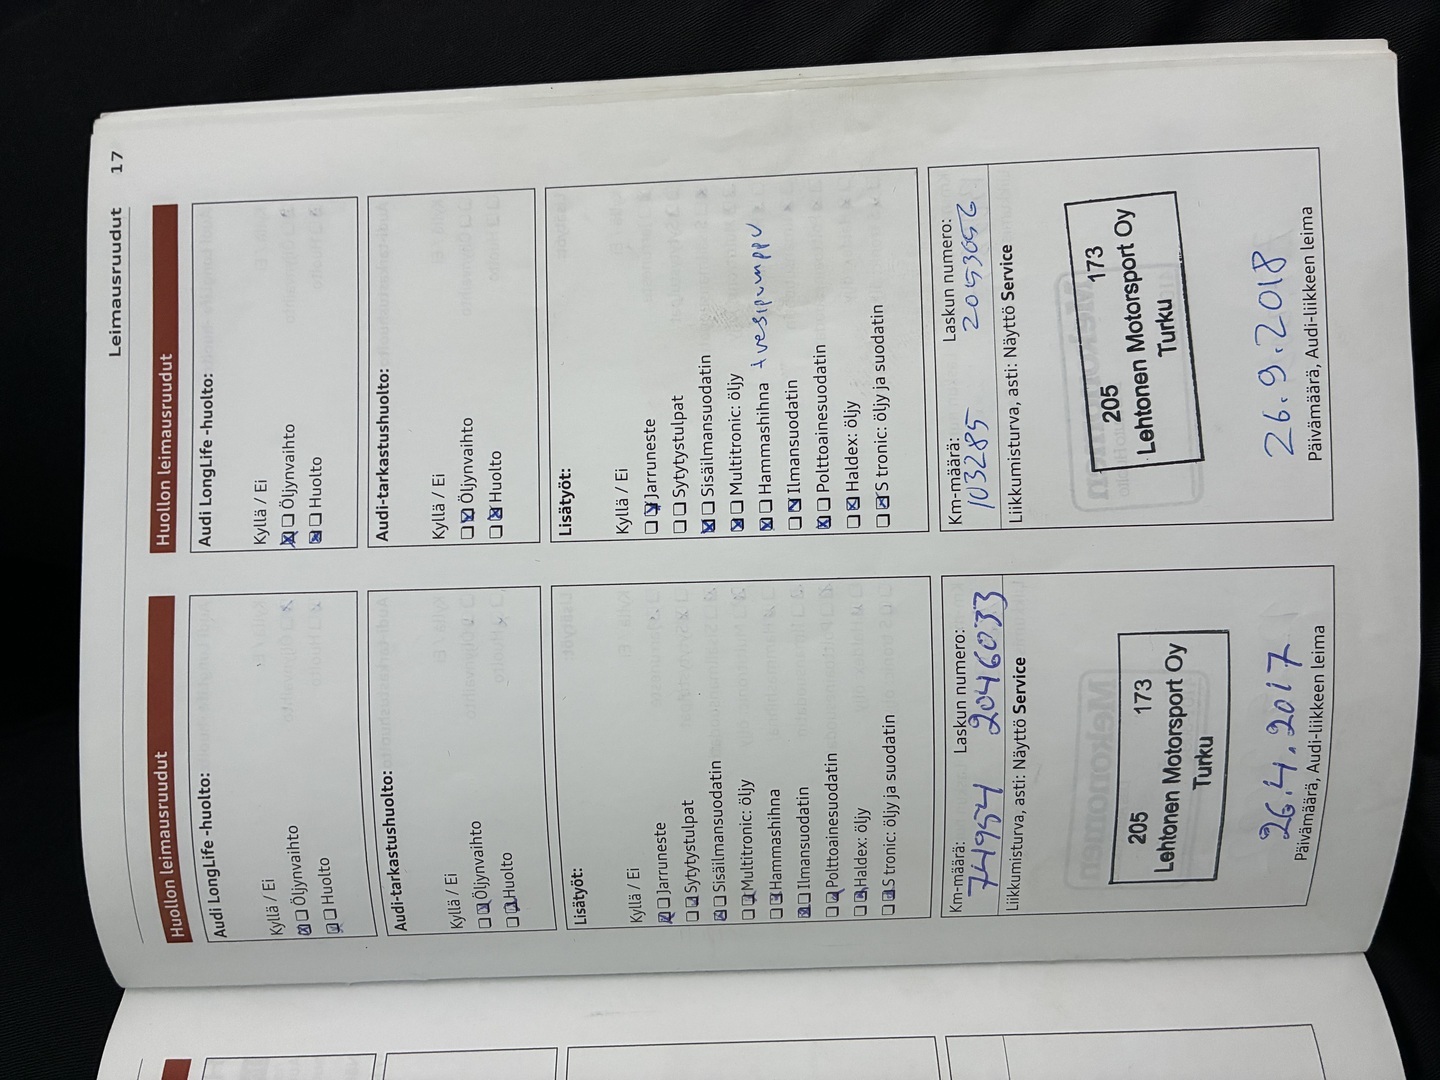 Leimausruudut 17
Huollon leimausruudut
Audi LongLife -huolto:
Kyllä / Ei
Öljynvaihto
Huolto
Audi-tarkastushuolto:
Kyllä / Ei
Öljynvaihto
Huolto
Lisätyöt:
Kyllä / Ei
Jarruneste
Sytytystulpat
Sisäilmansuodatin
Multitronic: öljy
Hammashihna
Ilmansuodatin
Polttoainesuodatin
Haldex: öljy
S tronic: öljy ja suodatin
Km-määrä: Laskun numero:
74954 2046033
Liikkumisturva, asti: Näyttö Service
205 173
Lehtonen Motorsport Oy
Turku
26.4.2017
Päivämäärä, Audi-liikkeen leima
Huollon leimausruudut
Audi LongLife -huolto:
Kyllä / Ei
Öljynvaihto
Huolto
Audi-tarkastushuolto:
Kyllä / Ei
Öljynvaihto
Huolto
Lisätyöt:
Kyllä / Ei
Jarruneste
Sytytystulpat
Sisäilmansuodatin
Multitronic: öljy
Hammashihna + vesipumppu
Ilmansuodatin
Polttoainesuodatin
Haldex: öljy
S tronic: öljy ja suodatin
Km-määrä: Laskun numero:
103285
Liikkumisturva, asti: Näyttö Service
205 173
Lehtonen Motorsport Oy
Turku
26.9.2018
Päivämäärä, Audi-liikkeen leima